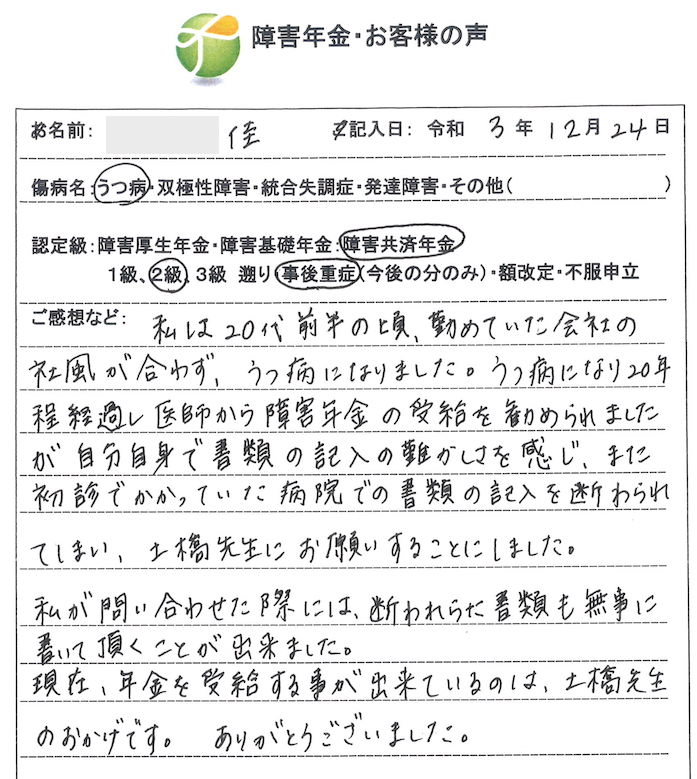 障害年金・お客様の声
お名前: 佳 ご記入日: 令和 3 年 12 月 24 日
傷病名:うつ病・双極性障害・統合失調症・発達障害・その他( )
認定級:障害厚生年金・障害基礎年金・障害共済年金
1級、2級、3級 遡り・事後重症(今後の分のみ)・額改定・不服申立
ご感想など: 私は20代前半の頃、勤めていた会社の
社風が合わず、うつ病になりました。うつ病になり20年
程経過し医師から障害年金の受給を勧められました
が自分自身で書類の記入の難かしさを感じ、また
初診でかかっていた病院での書類の記入を断わられ
てしまい、土橋先生にお願いすることにしました。
私が問い合わせた際には、断われらた書類も無事に
書いて頂くことが出来ました。
現在、年金を受給する事が出来ているのは、土橋先生
のおかげです。 ありがとうございました。